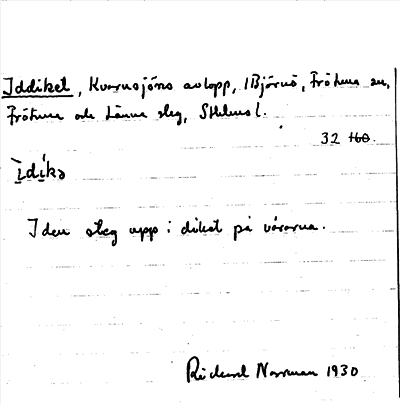 Iddiket, Kvarnsjöns avlopp, i Björnö, Frötuna sn,
Frötuna och Länna skg, Sthlms l.
32 160.
ìdíkə
Iden steg upp i diket på vårarna.
Rickard Norrman 1930